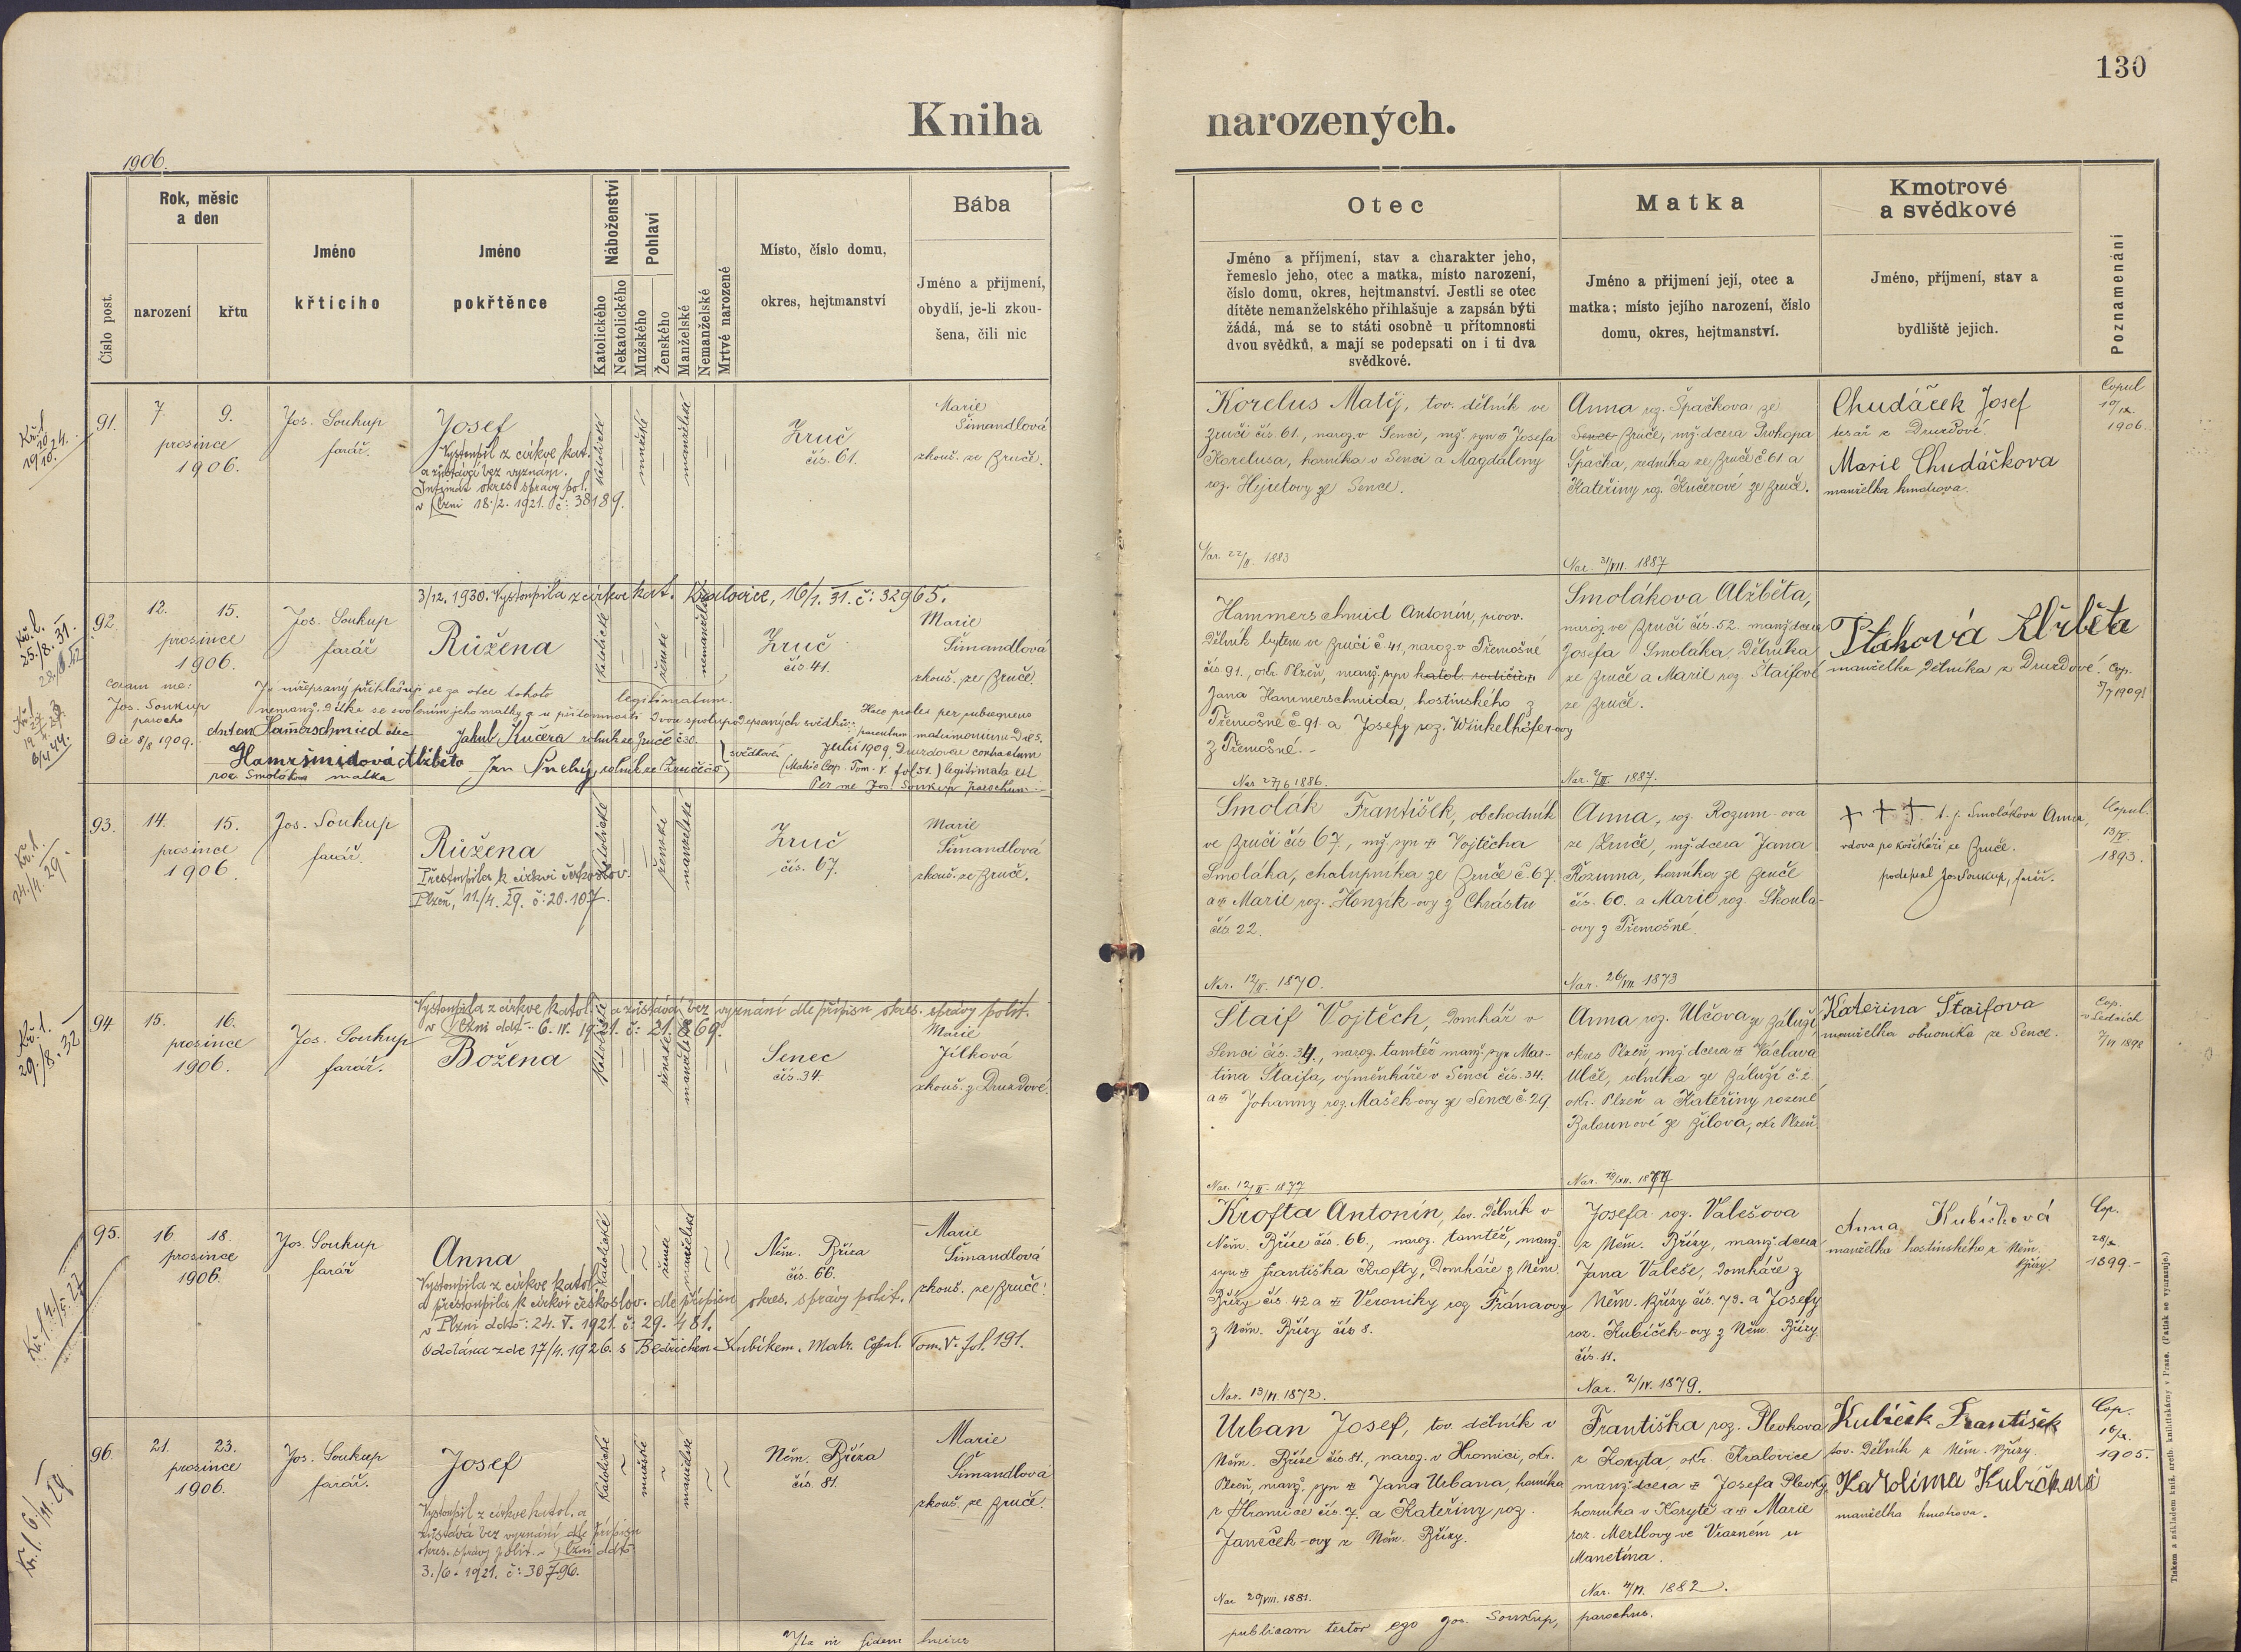 130
Kniha narozených.
1906.
Číslo post.
Rok, měsíc
a den
narození
křtu
Jméno
křtícího
Jméno
pokřtěnce
Náboženství
Katolického
Nekatolického
Pohlaví
Mužského
Ženského
Manželské
Nemanželské
Mrtvě narozené
Místo, číslo domu,
okres, hejtmanství
Bába
Jméno a příjmení,
obydlí, je-li zkou-
šena, čili nic
Otec
Jméno a příjmení, stav a charakter jeho,
řemeslo jeho, otec a matka, místo narození,
číslo domu, okres, hejtmanství. Jestli se otec
dítěte nemanželského přihlašuje a zapsán býti
žádá, má se to státi osobně u přítomnosti
dvou svědků, a mají se podepsati on i ti dva
svědkové.
Matka
Jméno a příjmení její, otec a
matka; místo jejího narození, číslo
domu, okres, hejtmanství.
Kmotrové
a svědkové
Jméno, příjmení, stav a
bydliště jejich.
Poznamenání
91.
7. 9.
prosince
1906.
Jos. Soukup
farář.
Josef
Vystoupil z církve kat.
a zůstává bez vyznání.
Intimát okres. správy pol.
v Plzni 18./2. 1921. č: 38189.
katolické
mužské
manželské
Zruč
čís. 61.
Marie
Šimandlová
zkouš. ze Zruče.
Korelus Matěj, tov. dělník ve
Zruči čís 61., naroz. v Senci, mž. syn Josefa
Korelusa, horníka v Senci a Magdaleny
roz. Hejretovy ze Sence.
Nar. 22/II. 1883
Anna roz. Špačkova ze
Sence Zruče, mž. dcera Prokopa
Špačka, zedníka ze Zruče č 61 a
Kateřiny roz. Kučerové ze Zruče.
Nar. 31/VII. 1887
Chudáček Josef
tesař z Druzdové.
Marie Chudáčkova
manželka kmotrova.
Copul
1906.
92.
12. 15.
prosince
1906.
Jos. Soukup
farář
3/12. 1930. Vystoupila z církve kat. Kralovice, 16/1. 31. č: 32965.
Růžena
katolické
ženské
nemanželské
Zruč
čís. 41.
Marie
Šimandlová
zkouš. ze Zruče.
Coram me:
Jos. Soukup
parocho
Die 8/8 1909.
Já nížepsaný přihlašuji se za otce tohoto
nemanž. dítka se svolením jeho matky a u přítomnosti dvou spolupodepsaných svědků:
Anton Hamerschmied otec
Jakub Kučera rolník ze Zruče č 30
Hamršmidová Alžběta
roz Smolákova matka
svědkové
legitimatum.
Haec proles per subsequens
parentum matrimonium Die 5.
Julii 1909 Druzdovae contractum
(Matric Cop. Tom. V. fol 51.) legitimata est
Per me Jos. Soukup parochum
Hammerschmid Antonín, provv.
dělník bytem ve Zruči č 41, naroz. v Třemošné
čís 91., okr. Plzeň, manž. syn katol. rodičův
Jana Hammerschmida, hostinského z
Třemošné č 91. a Josefy roz. Winkelhöfer-ovy
z Třemošné.
Nar 27/6 1886.
Smolákova Alžběta,
naroz. ve Zruči čís. 52. manž. dcera
Josefa Smoláka, dělníka
ze Zruče a Marie roz. Štaifové
ze Zruče.
Nar. 1887.
Ptáková Alžběta
manželka dělníka z Druzdové.
Cop.
5/7 1909
93.
14. 15.
prosince
1906.
Jos. Soukup
farář.
Růžena
Přestoupila k církvi českoslov.
Plzeň, 11/4. 29. č: 20.107.
katolické
ženské
manželské
Zruč
čís. 67.
Marie
Šimandlová
zkouš. ze Zruče.
Smolák František, obchodník
ve Zruči čís 67., mž. syn Vojtěcha
Smoláka, chalupníka ze Zruče č. 67.
a Marie roz. Honzík-ovy z Chrástu
čís. 22.
Nar. 1870.
Anna, roz. Rozum-ova
ze Zruče, mž. dcera Jana
Rozuma, horníka ze Zruče
čís. 60. a Marie roz. Škoula-
-ovy z Třemošné.
Nar. 26/VII 1873
+ + + t. j. Smolákova Anna,
vdova po košíkáři ze Zruče.
podepsal Jos Soukup, farář.
Copul.
1893.
94.
15. 16.
prosince
1906.
Jos. Soukup
farář.
Vystoupila z církve katol. a zůstává bez vyznání dle přípisu okres. správy polit.
v Plzni ddto 6. IV. 1921. č: 21.869.
Božena
katolické
ženské
manželské
Senec
čís. 34.
Marie
Jílková
zkouš. z Druzdové.
Štaif Vojtěch, domkář v
Senci čís. 34., naroz. tamtéž manž. syn Mar-
tina Štaifa, výměnkáře v Senci čís. 34.
a Johanny roz. Mašek-ovy ze Sence č 29.
Nar. 12/II. 1877
Anna roz. Ulčova ze Záluží
okres Plzeň, mž. dcera Václava
Ulče, rolníka ze Záluží č. 2.
okr. Plzeň a Kateřiny rozené
Balounové ze Žilova, okr. Plzeň.
Nar. 1877
Kateřina Štaifova
manželka obuvníka ze Sence.
Cop.
v Ledcích
1898
95.
16 18.
prosince
1906.
Jos. Soukup
farář
Anna
Vystoupila z církve katol.
a přestoupila k církvi českoslov. dle přípisu okres. správy polit.
v Plzni ddto: 24. V. 1921. č: 29.481.
Oddána zde 17/4. 1926. s Bedřichem Kubíkem. Matr. Copul. Tom. V. fol. 191.
katolické
ženské
manželské
Něm. Bříza
čís. 66.
Marie
Šimandlová
zkouš. ze Zruče.
Krofta Antonín, tov. dělník v
Něm. Bříze čís. 66., naroz. tamtéž, manž.
syn Františka Krofty, domkáře z Něm.
Břízy čís. 42 a Veroniky roz Fránaovy
z Něm. Břízy čís 8.
Nar. 13/VI. 1872.
Josefa roz. Valešova
z Něm. Břízy, manž. dcera
Jana Valeše, domkáře z
Něm. Břízy čís. 73. a Josefy
roz. Kubíček-ovy z Něm. Břízy
čís. 11.
Nar. 2/IV. 1879.
Anna Kubíčková
manželka hostinského z Něm.
Břízy.
Cop.
1899.
96.
21. 23.
prosince
1906.
Jos. Soukup
farář.
Josef
Vystoupil z církve katol. a
zůstává bez vyznání dle přípisu
okres. správy polit. v Plzni ddto
3./6. 1921. č: 30796.
katolické
mužské
manželské
Něm. Bříza
čís. 81.
Marie
Šimandlová
zkouš. ze Zruče.
Urban Josef, tov. dělník v
Něm. Bříze čís. 81., naroz. v Hromnici, okr.
Plzeň, manž. syn Jana Urbana, horníka
z Hromnice čís. 7. a Kateřiny roz.
Janeček-ovy z Něm. Břízy.
Nar 29/VIII. 1881.
Františka roz. Plevkova
z Koryta, okr. Kralovice
manž. dcera Josefa Plevky,
horníka v Korytě a Marie
roz. Mertlovy ve Vrazném u
Manětína.
Nar. 1882.
Kubíček František
tov. dělník z Něm. Břízy.
Karolina Kubíčková
manželka kmotrova.
Cop.
1905.
In fidem
publicam testor ego Jos. Soukup, parochus.
Tiskem a nákladem knih. arcib. knihtiskárny v Praze. (Patisk se vyhrazuje.)